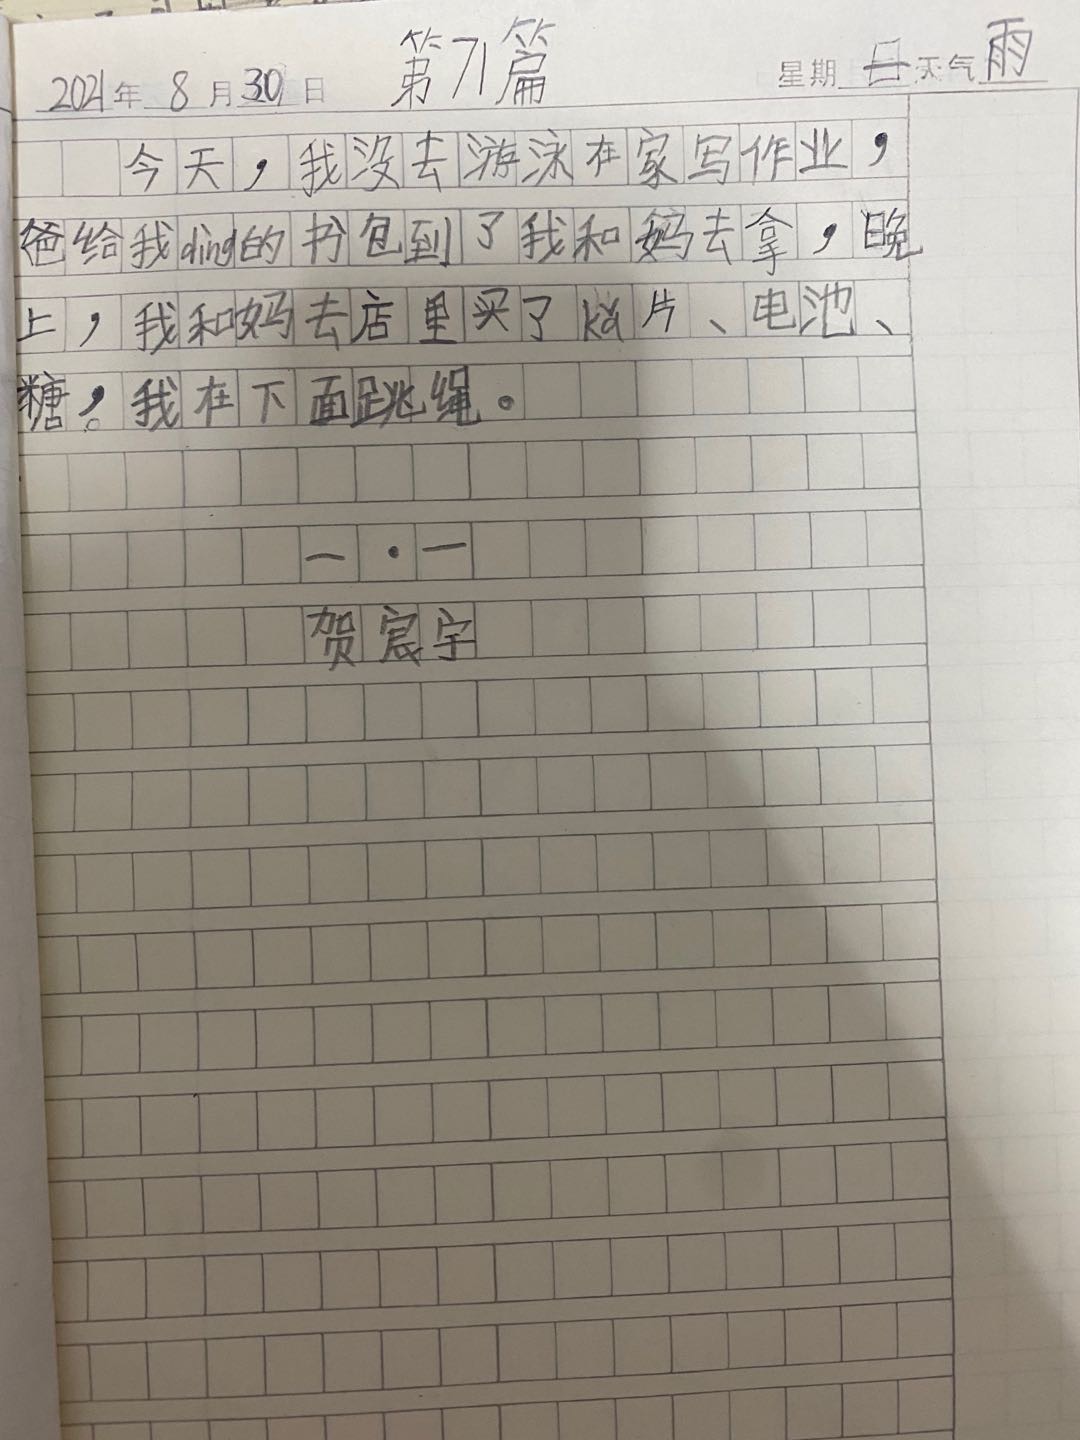 第71篇
2021年 8月30日 星期日天气雨
今天，我没去游泳在家写作业，
爸给我ding的书包到了我和妈去拿，晚
上，我和妈去店里买了kǎ片、电池、
糖，。我在下面跳绳。
一·一
贺宸宇